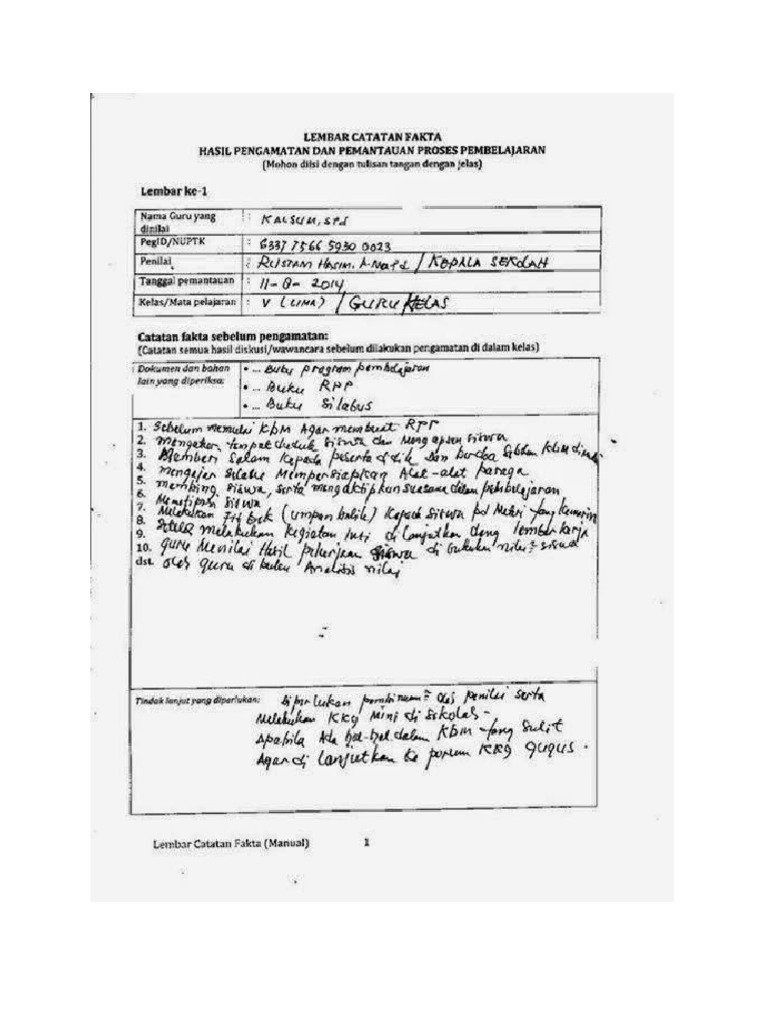 LEMBAR CATATAN FAKTA
HASIL PENGAMATAN DAN PEMANTAUAN PROSES PEMBELAJARAN
(Mohon diisi dengan tulisan tangan dengan jelas)
Lembar ke-1
Nama Guru yang dinilai : KALSUM, SPd
PegID/NUPTK : 6337 7566 5930 0023
Penilai : RUSTAM HASIM. A.Ma.Pd / KEPALA SEKOLAH
Tanggal pemantauan : 11-8-2014
Kelas/Mata pelajaran : V (LIMA) / GURU KELAS
Catatan fakta sebelum pengamatan:
(Catatan semua hasil diskusi/wawancara sebelum dilakukan pengamatan di dalam kelas)
Dokumen dan bahan lain yang diperiksa:
• ... Buku program pembelajaran
• ... Buku RPP
• ... Buku Silabus
1. Sebelum memulai KBM Agar membuat RPP
2. mengatur tempat duduk siswa dan mengapsen siswa
3. Memberi salam kepada peserta didik dan berdoa sebelum KBM
4. mengajar selalu mempersiapkan Alat-alat paraga
5. membing siswa, serta mengaktipkan suasana dalam pembelajaran
6. siswa
7. Melakukan (umpan balik) kepada siswa yang kemarin
8. melakukan kegiatan inti di lanjutkan deng lembar kerja
9. guru menilai Hasil siswa di nilai² siswa
10. oleh guru di Analisis nilai
dst.
Tindak lanjut yang diperlukan: diperlukan pembinaan² oleh penilai serta
Melakukan KKG Mini di sikolah -
Apabila Ada hal-hal dalam KBM yang sulit
Agar di lanjutkan ke porum KKG gugus.
Lembar Catatan Fakta (Manual) 1